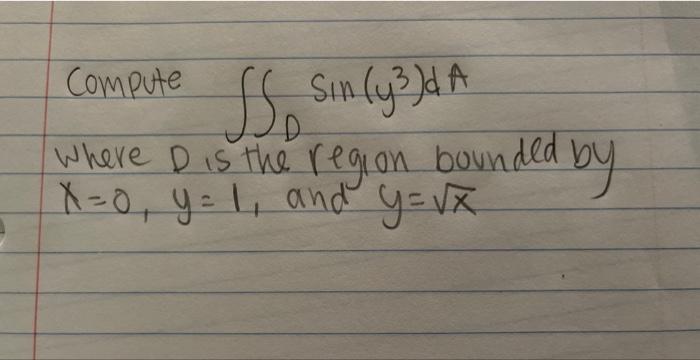 Compute ∬_D Sin(y³)dA
where D is the region bounded by
x=0, y=1, and y=√x